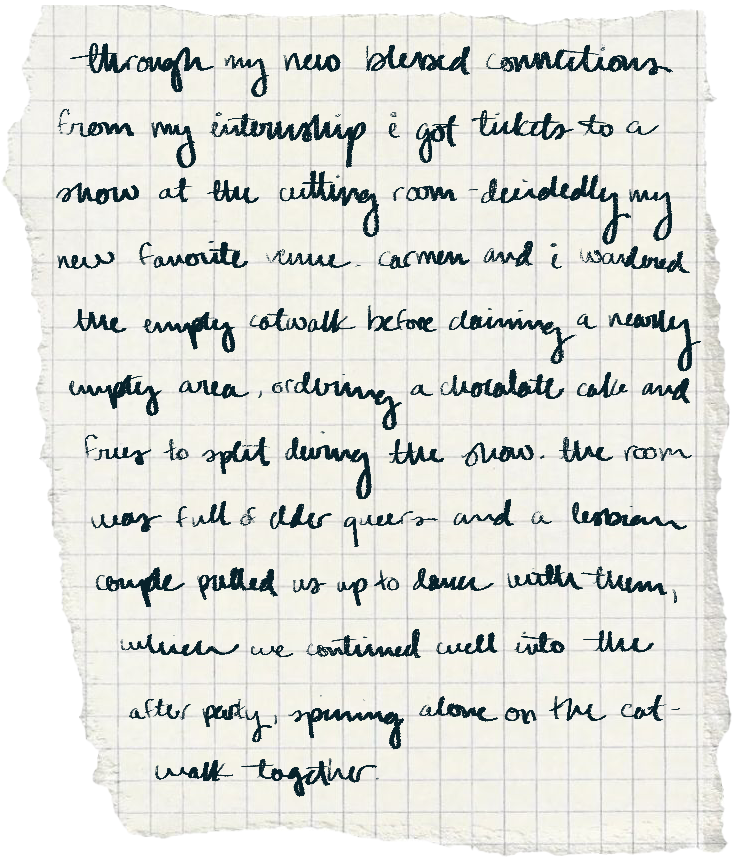 through my new blessed connections
from my internship i got tickets to a
show at the cutting room - decidedly my
new favorite venue. carmen and i wandered
the empty catwalk before claiming a nearly
empty area, ordering a chocolate cake and
fries to split during the show. the room
was full of older queers and a lesbian
couple pulled us up to dance with them,
which we continued well into the
after party, spinning alone on the cat-
walk together.